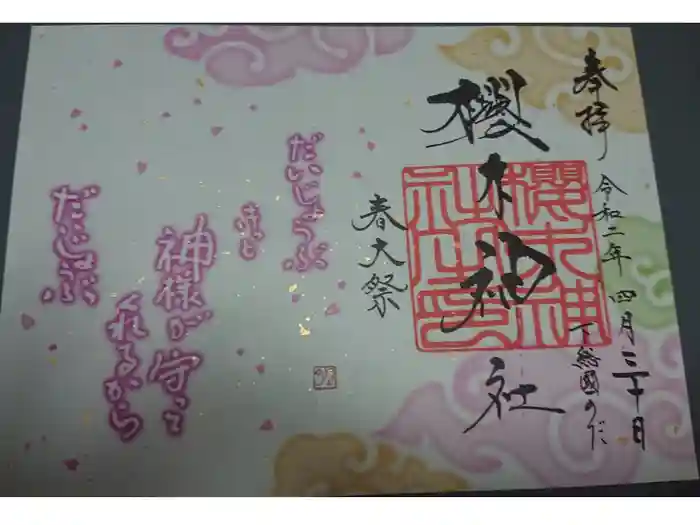 奉拝
令和二年 四月三十日
下総國のだ
櫻木神社
櫻木神社之印
春大祭
だいじょうぶ
きっと
神様が守って
くれるから
だいじょぶ